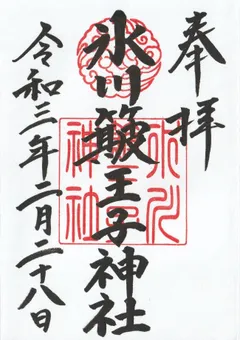 奉拝
氷川簸王子神社
令和三年二月二十八日